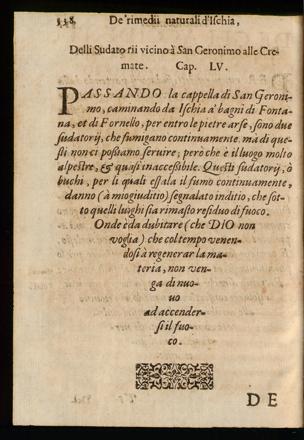 338. De' rimedii naturali d'Ischia,
Delli Sudato rii vicino à San Geronimo alle Cre-
mate. Cap. LV.
PASSANDO la cappella di San Geroni-
mo, caminando da Ischia à bagni di Fonta-
na, et di Fornello, per entro le pietre arse, sono due
sudatorij, che fumigano continuamente. ma di que-
sti non ci possiamo seruire, però che è il luogo molto
alpestre, & quasi inaccessibile. Questi sudatorij, ò
buchi, per li quali essala il fumo continuamente,
danno (à mio giuditio) segnalato inditio, che sot-
to quelli luoghi sia rimasto residuo di fuoco.
Onde è da dubitare (che DIO non
voglia) che col tempo venen-
dosi à regenerar la ma-
teria, non ven-
ga di nuo-
uo
ad accender-
si il fuo-
co.
DE